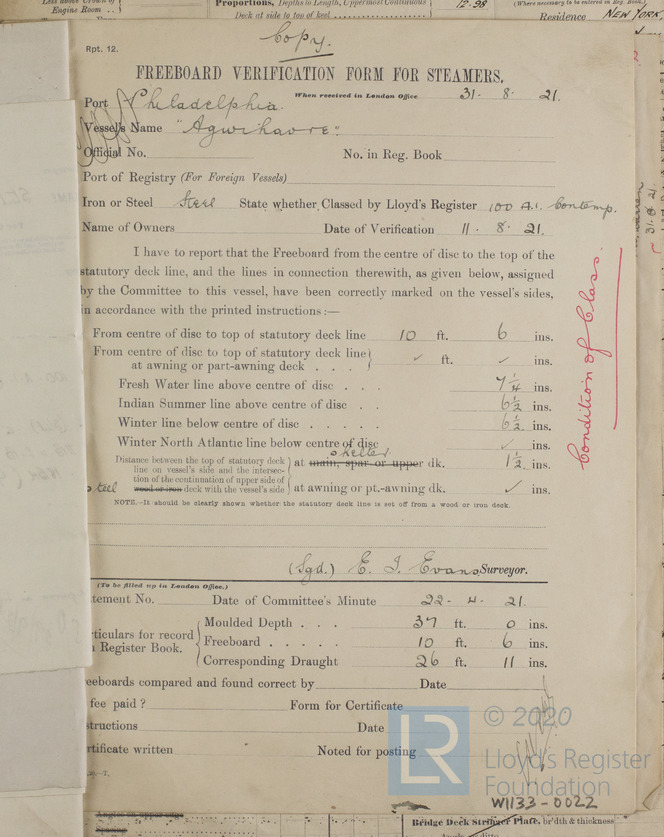 Engine Room ..
Proportions, Depths to Length, Uppermost Continuous
Deck at side to top of keel
12.98
(Where necessary to be entered in Reg. Book.)
Residence NEW YORK
Copy.
Rpt. 12.
FREEBOARD VERIFICATION FORM FOR STEAMERS.
When received in London Office 31. 8. 21.
Port Philadelphia.
Vessel's Name "Agwihavre".
Official No. No. in Reg. Book
Port of Registry (For Foreign Vessels)
Iron or Steel Steel State whether Classed by Lloyd's Register 100 A.1. Contemp.
Name of Owners Date of Verification 11. 8. 21.
I have to report that the Freeboard from the centre of disc to the top of the
statutory deck line, and the lines in connection therewith, as given below, assigned
by the Committee to this vessel, have been correctly marked on the vessel's sides,
in accordance with the printed instructions:—
From centre of disc to top of statutory deck line 10 ft. 6 ins.
From centre of disc to top of statutory deck line
at awning or part-awning deck . . . ✓ ft. ✓ ins.
Fresh Water line above centre of disc . . . 7 1/4 ins.
Indian Summer line above centre of disc . . 6 1/2 ins.
Winter line below centre of disc . . . . . 6 1/2 ins.
Winter North Atlantic line below centre of disc ✓ ins.
Distance between the top of statutory deck
line on vessel's side and the intersec-
tion of the continuation of upper side of
steel wood or iron deck with the vessel's side
shelter
at main, spar or upper dk. 1 1/2 ins.
at awning or pt.-awning dk. ✓ ins.
NOTE.—It should be clearly shown whether the statutory deck line is set off from a wood or iron deck.
Condition of Class.
31.8.21
(Sgd.) E. J. Evans Surveyor.
(To be filled up in London Office.)
tement No. Date of Committee's Minute 22. 4. 21.
rticulars for record
Register Book.
Moulded Depth . . . 37 ft. 0 ins.
Freeboard . . . . . 10 ft. 6 ins.
Corresponding Draught 26 ft. 11 ins.
eeboards compared and found correct by Date
fee paid ? Form for Certificate
structions Date
rtificate written Noted for posting
LR
© 2020
Lloyd's Register
Foundation
W1133-0022
Angles on upper edge
Spacing
Bridge Deck Stringer Plate, br'dth & thickness